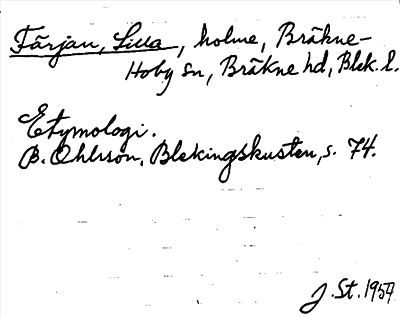 Färjan, Lilla, holme, Bräkne-
Hoby sn, Bräkne hd, Blek. l.
Etymologi.
B. Ohlsson, Blekingskusten, s. 74.
J. St. 1959